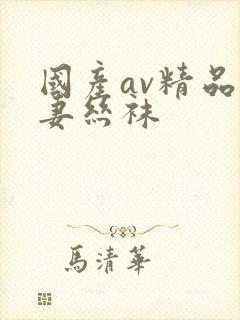 國産av精品
妻絲襪
馬清華